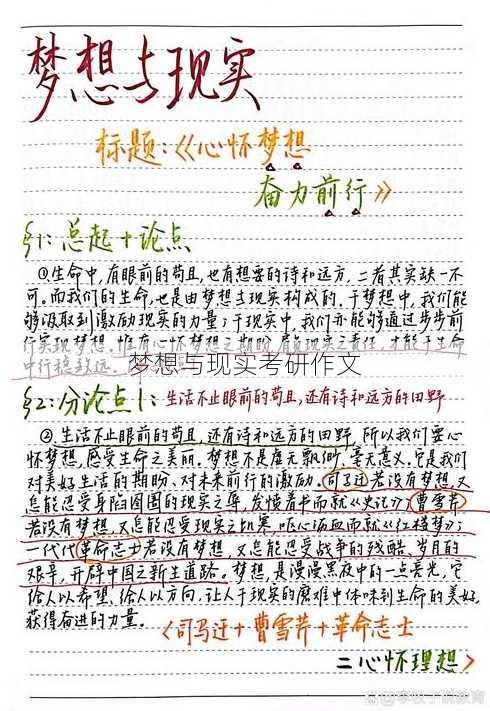 梦想与现实
标题:《心怀梦想
奋力前行》
§1:总起+论点
①生命中,有眼前的苟且,也有想要的诗和远方,二者其实缺一不
可。而我们的生命,也是由梦想与现实构成的。于梦想中,我们能
够汲取到激励现实的力量;于现实中,我们亦能够通过步步前
行实现梦想。惟有心怀梦想之期盼,肩负现实之责任,才能于生命
中行稳致远。
梦想与现实考研作文
§2:分论点1:生活不止眼前的苟且,还有诗和远方的田野
②生活不止眼前的苟且,还有诗和远方的田野,所以我们要心
怀梦想,感受生命之美丽。梦想不是虚无飘渺、毫无意义。它是我们
对美好生活的期盼、对未来前行的激励。司马迁若没有梦想,又
怎能忍受身陷囹圄的现实之辱,发愤著书而就《史记》;曹雪芹
若没有梦想,又怎能忍受现实之饥寒,呕心沥血而就《红楼梦》;
一代代革命志士若没有梦想,又怎能忍受战争的残酷、岁月的
艰辛,开辟中国之新生道路。梦想,是漫漫黑夜中的一点亮光,它
给人以希望、给人以方向,让人于现实的磨难中体味到生命的美好,
获得奋进的力量。
<司马迁+曹雪芹+革命志士
=心怀理想>